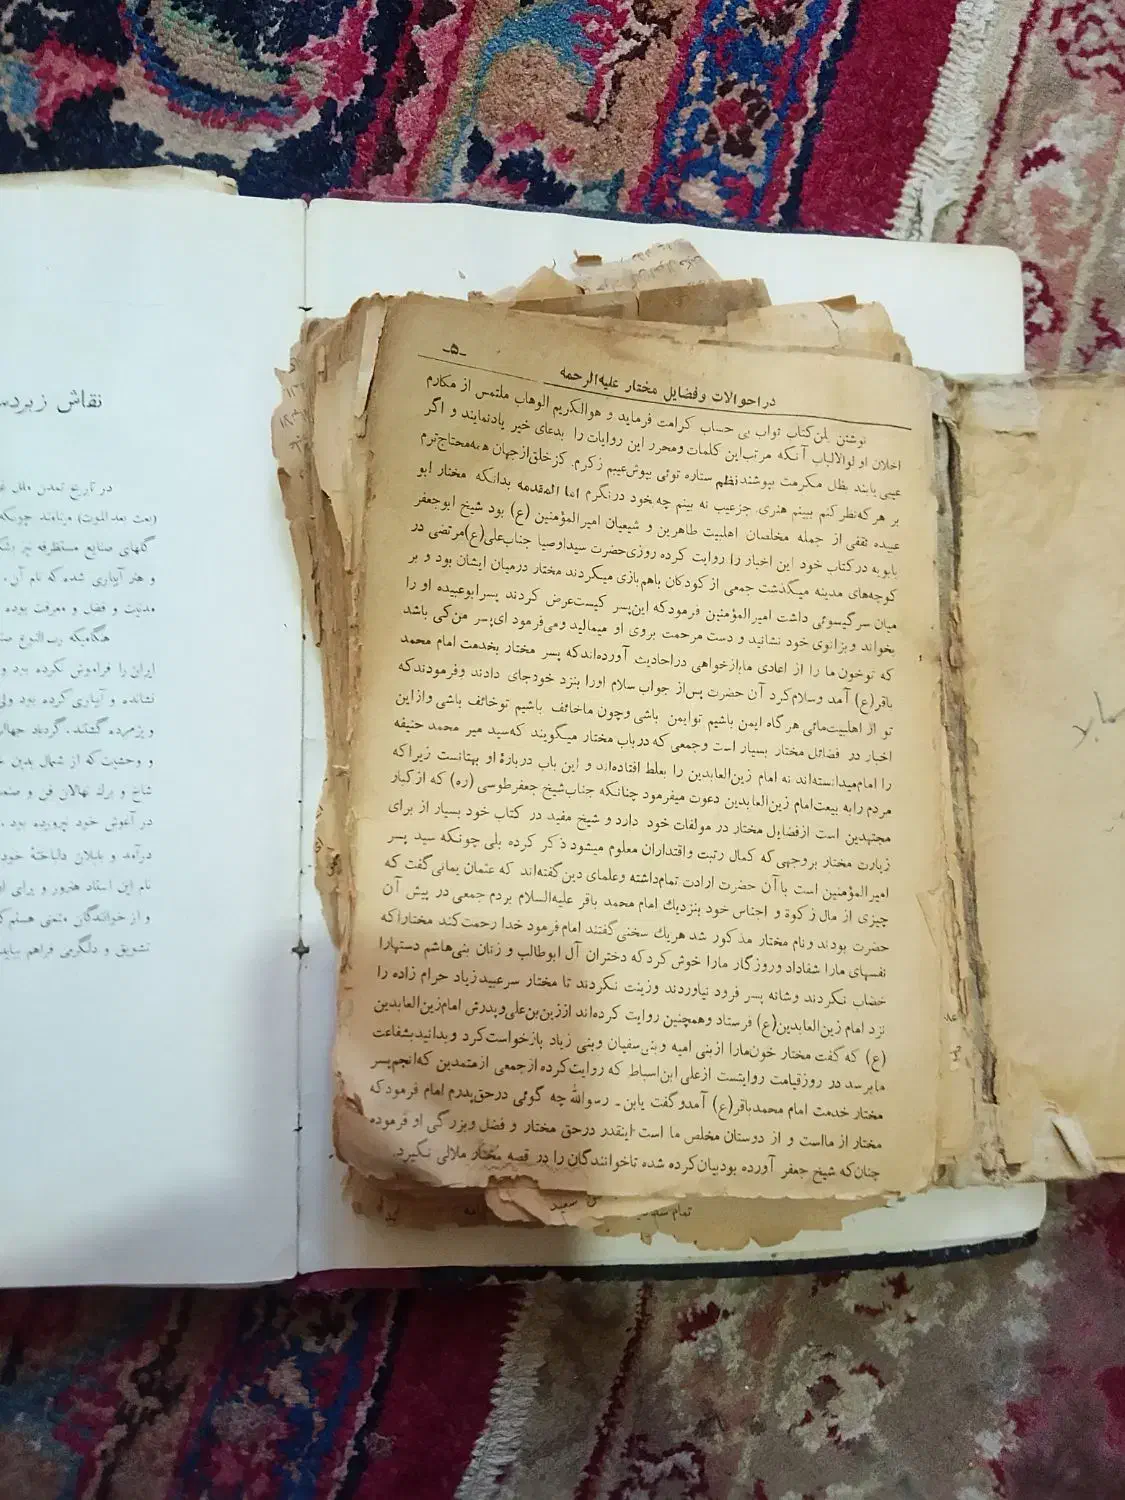 -۵-
در احوالات و فضایل مختار علیه‌الرحمه
نوشتن این کتاب ثواب بی حساب کرامت فرماید و هوالکریم الوهاب ملتمس از مکارم
اخلاق اولوالالباب آنکه مرتب این کلمات ومحرر این روایات را بدعای خیر یادنمایند و اگر
عیبی یابند بظل مکرمت بپوشند نظم ستاره توئی بپوش عیبم زکرم. کز خلق از جهان همه محتاج ترم
بر هر که نظر کنم ببینم هنری. جز عیب نه بینم چه بخود در نگرم اما المقدمه بدانکه مختار ابو
عبیده ثقفی از جمله مخلصان اهلبیت طاهرین و شیعیان امیرالمؤمنین (ع) بود شیخ ابوجعفر
بابویه در کتاب خود این اخبار را روایت کرده روزی حضرت سید اوصیا جناب علی (ع) مرتضی در
کوچه‌های مدینه میگذشت جمعی از کودکان باهم بازی میکردند مختار درمیان ایشان بود و بر
میان سر گیسوئی داشت امیرالمؤمنین فرمود که این پسر کیست عرض کردند پسر ابوعبیده او را
بخواند و بزانوی خود نشانید و دست مرحمت بروی او میمالید و می‌فرمود ای پسر من کی باشد
که توخون ما را از اعادی ما بازخواهی در احادیث آورده‌اند که پسر مختار بخدمت امام محمد
باقر(ع) آمد وسلام کرد آن حضرت پس از جواب سلام او را بنزد خود جای دادند وفرمودند که
تو از اهلبیت مائی هر گاه ایمن باشیم توایمن باشی وچون ماخائف باشیم توخائف باشی وازاین
اخبار در فضائل مختار بسیار است وجمعی که در باب مختار میگویند که سید میر محمد حنیفه
را امام میدانسته‌اند نه امام زین‌العابدین را بغلط افتاده‌اند و این باب دربارهٔ او بهتانست زیرا که
مردم را به بیعت امام زین‌العابدین دعوت میفرمود چنانکه جناب شیخ جعفر طوسی (ره) که از کبار
مجتهدین است از فضایل مختار در مولفات خود دارد و شیخ مفید در کتاب خود بسیار از برای
زیارت مختار بروجهی که کمال رتبت واقتداران معلوم میشود ذکر کرده بلی چونکه سید پسر
امیرالمؤمنین است با آن حضرت ارادت تمام داشته وعلمای دین گفته‌اند که عثمان یمانی گفت که
چیزی از مال زکوة و اجناس خود بنزدیک امام محمد باقر علیه‌السلام بردم جمعی در پیش آن
حضرت بودند ونام مختار مذکور شد هریك سخنی گفتند امام فرمود خدا رحمت کند مختار را که
نفسهای مارا شفا داد وروزگار مارا خوش کرد که دختران آل ابوطالب و زنان بنی هاشم دستهارا
خضاب نکردند وشانه بسر فرود نیاوردند وزینت نکردند تا مختار سر عبید زیاد حرام زاده را
نزد امام زین‌العابدین(ع) فرستاد وهمچنین روایت کرده‌اند از زین بن علی وپدرش امام زین‌العابدین
(ع) که گفت مختار خون مارا از بنی امیه و بنی سفیان وبنی زیاد بازخواست کرد وبدانید بشفاعت
ما برسد در روز قیامت روایتست از علی ابن اسباط که روایت کرده از جمعی از معتمدین که انجم پسر
مختار خدمت امام محمدباقر(ع) آمدو گفت یابن - رسول‌الله چه گوئی درحق پدرم امام فرمود که
مختار از مااست و از دوستان مخلص ما است اینقدر درحق مختار و فضل وبزرگی او فرموده
چنان که شیخ جعفر آورده بود بیان کرده شده تاخوانندگان را در قصه مختار ملالی نگیرد.
نقاش زبردست
در تاریخ تمدن ملل
گلهای صنایع مستظرفه نیز
و هنر آبیاری شده که نام آن
مدنیت و فضل و معرفت بوده
هنگامیکه رب‌النوع
ایران را فراموش نکرده بود و
نشانده و آبیاری کرده بود ولی
و پژمرده گشتند. گردباد
و وحشیت که از شمال بدین
شاخ و برك نهالان فن و
در آغوش خود پرورده بود.
درآمد و بلبلان دلباختهٔ خود
نام این استاد هنرور و برای
و از خوانندگان متمنی هستم
تشویق و دلگرمی فراهم
تمام شد
سعید